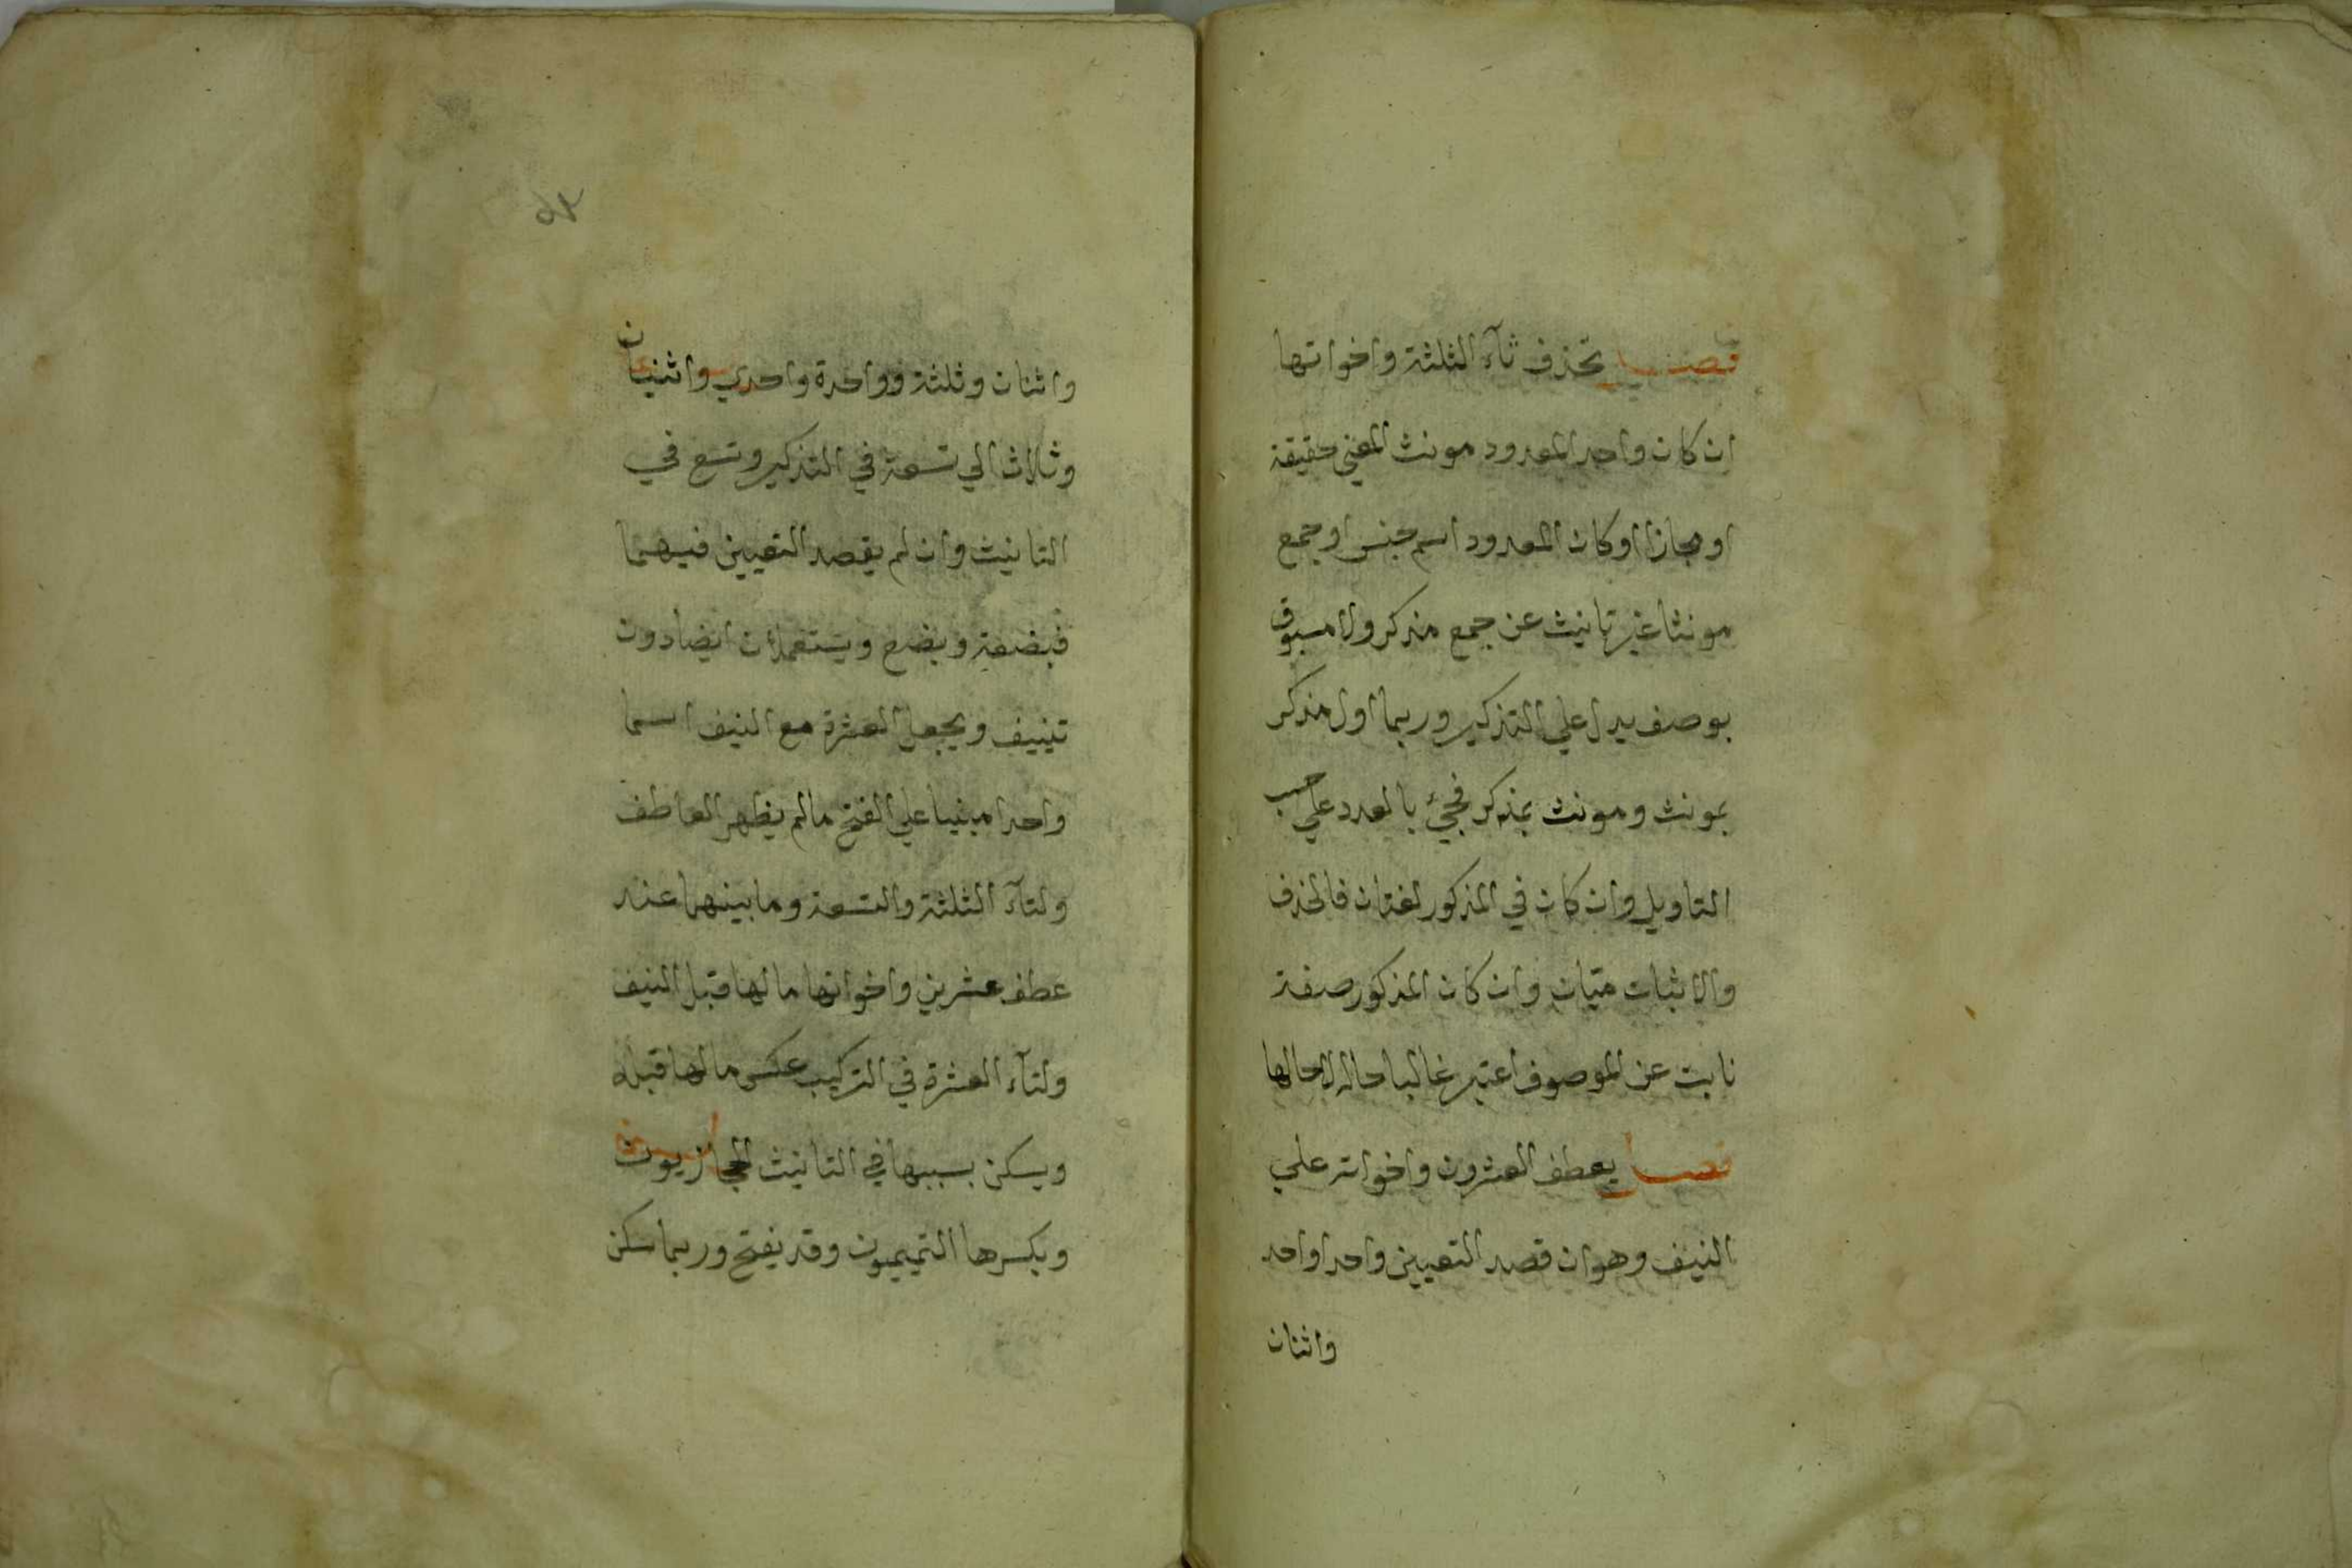 فصل تحذف ثآء الثلثة واخواتها
ان كان واحد المعدود مونث المعني حقيقة
او مجازا او كان المعدود اسم جنس او جمع
مونثا غير تانيث عن جمع مذكر ولا مسبوق
بوصف يدل علي التذكير وربما اول مذكر
بمونث ومونث بمذكر فجيء بالعدد علي حسب
التاويل وان كان في المذكور لغتان فالحذف
والاثبات متيان وان كان المذكور صفة
نابت عن الموصوف اعتبر غالبا حاله لا حالها
فصل يعطف العشرون واخواته علي
النيف وهو ان قصد التعيين واحد او احد
واثنان
واثنان وثلثة وواحدة واحدي واثنتان
وثلاث الي تسعة في التذكير وتسع في
التانيث وان لم يقصد التعيين فيهما
فبضعة وبضع ويستعملان ايضا دون
تنييف ويجعل العشرة مع النيف اسما
واحدا مبنيا علي الفتح مالم يظهر العاطف
ولتآء الثلثة والتسعة وما بينهما عند
عطف عشرين واخواتها ما لها قبل النيف
ولتآء العشرة في التركيب عكس ما لها قبله
ويسكن بسببها في التانيث الحجازيون
ويكسرها التميميون وقد يفتح وربما سكن